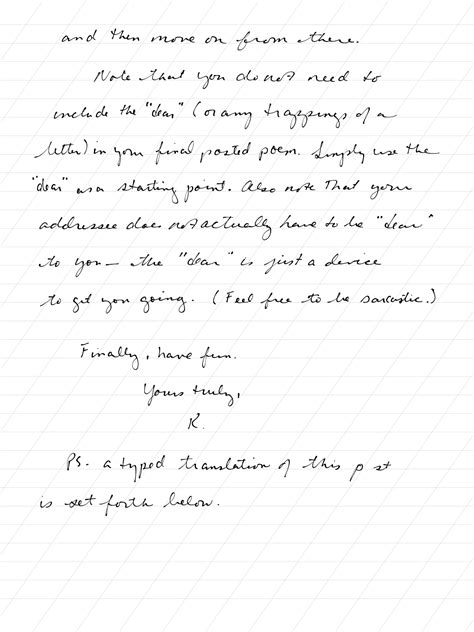 and then move on from there.
Note that you do not need to
include the "dear" (or any trappings of a
letter) in your final posted poem. Simply use the
"dear" as a starting point. Also note that your
addressee does not actually have to be "dear"
to you — the "dear" is just a device
to get you going. (Feel free to be sarcastic.)
Finally, have fun.
Yours truly,
K.
PS. a typed translation of this p st
is set forth below.